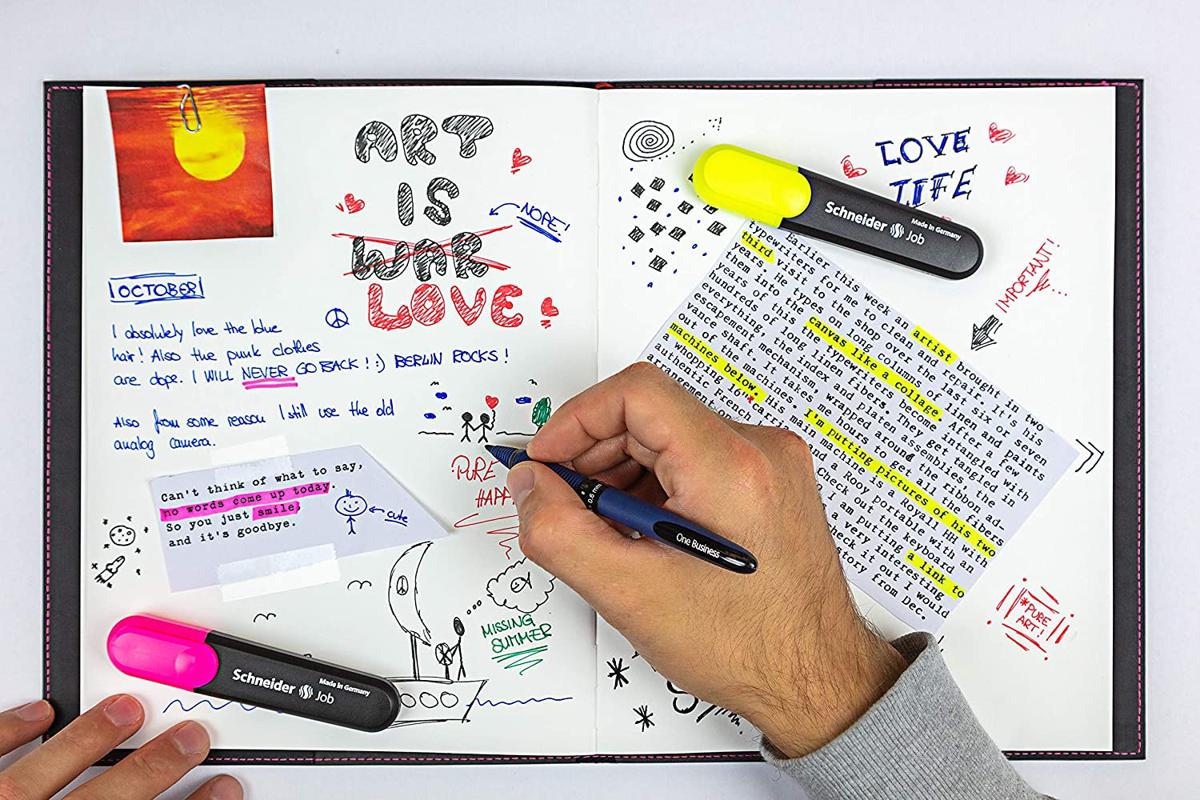 ART
IS
WAR
LOVE
NOPE!
OCTOBER
I absolutely love the blue
hair! Also the punk clothes
are dope. I WILL NEVER GO BACK! :) BERLIN ROCKS!
Also from some reason I still use the old
analog camera.
Can't think of what to say,
no words come up today.
So you just smile,
and it's goodbye.
cute
PURE
HAPP
MISSING
SUMMER
Schneider Job
Made in Germany
0.6 mm
One Business
LOVE
LIFE
Schneider Job
Made in Germany
IMPORTANT!
Earlier this week an artist brought in two
typewriters for me to clean and repair. It's his
third visit to the shop over the last six or seven
years. He types on long columns of linen and paint
them into this canvas like a collage. After a few
years of this typewriters become intangled with
hundreds of long linen fibers. They get tangled in
everything, the feed and platen assemblies, the
escapement mechanism wrapped around the ribbon
vance shaft. It takes me hours to get all the fibers
out of the machines. I'm putting pictures of his two
machines below. His main machine is a Royall HH with
a whopping 16" carri
authentic French
arrangement.
a Rooy portable with
Check out the keyboard
I am putting a link to
very interesting
check it out I would
story from Dec.
*PURE
ART!